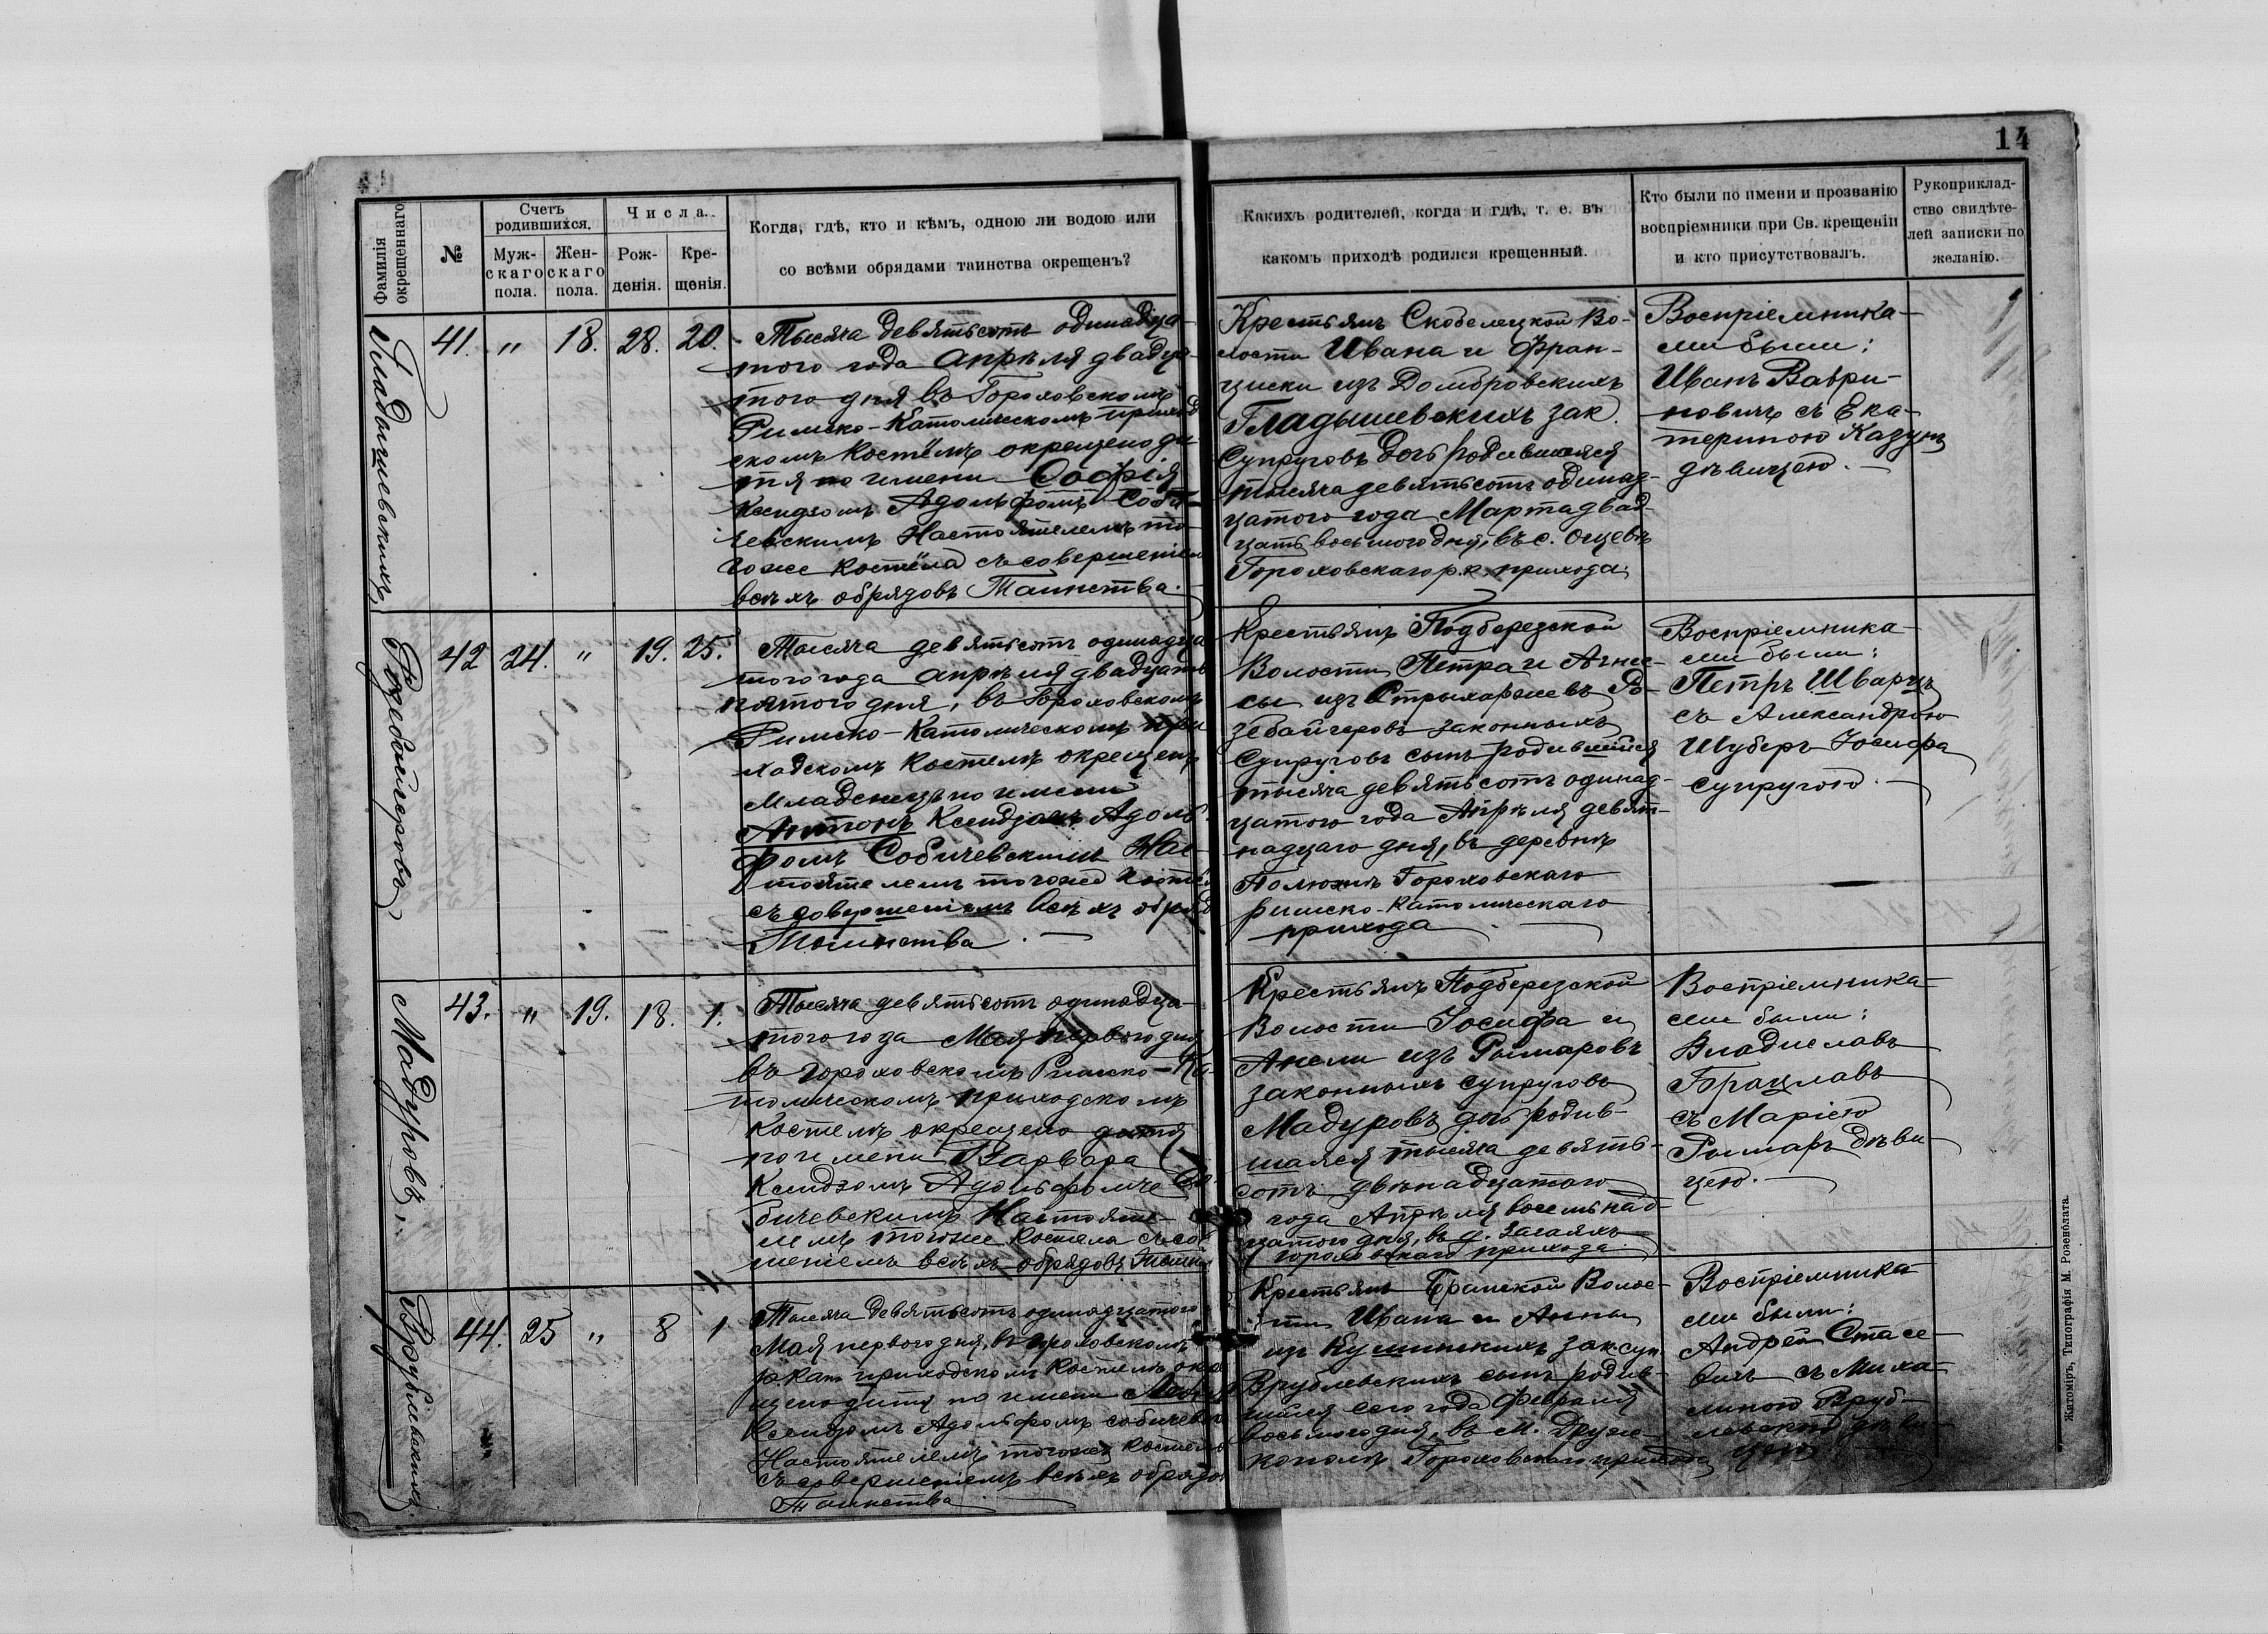 14
Фамилія
окрещеннаго
№
Счетъ
родившихся.
Муж-
скаго
пола.
Жен-
скаго
пола.
Числа.
Рож-
денія.
Кре-
щенія.
Когда, гдѣ, кто и кѣмъ, одною ли водою или
со всѣми обрядами таинства окрещенъ?
Какихъ родителей, когда и гдѣ, т. е. въ
какомъ приходѣ родился крещенный.
Кто были по имени и прозванію
воспріемники при Св. крещеніи
и кто присутствовалъ.
Рукоприклад-
ство свидѣте-
лей записки по
желанію.
Гладышевскихъ
41. „ 18. 28. 20.
Тысяча девятьсотъ одинадца-
того года апрѣля двадца-
того дня въ Гороховскомъ
Римско-Католическомъ приход
скомъ костёлѣ окрещено ди-
тя по имени София
Ксендзомъ Адольфомъ Соби-
чевскимъ Настоятелемъ то-
гоже костёла съ совершеніем
всѣхъ обрядовъ Таинства.
Крестьянъ Скобелецкой Во-
лости Ивана и Фран-
циски изъ Домбровскихъ
Гладышевскихъ зак.
Супруговъ дочь родившаяся
тысяча девятьсотъ одинад-
цатого года Марта двад-
цать восьмого дня, въ с.
Гороховскаго р.к. прихода.
Воспріемника-
ми были:
Иванъ Ваври-
новичъ съ Ека-
териною Казун
дѣвицею.
Розебайгеровъ
42 24. „ 19. 25.
Тысяча девятьсотъ одинадца
того года апрѣля двадцать
пятого дня, въ Гороховскомъ
Римско-Католическомъ при
ходскомъ костелѣ окрещенъ
Младенецъ по имени
Антонъ Ксендзомъ Адоль
фомъ Собичевскимъ Нас
тоятелемъ тогоже костёл
съ совершеніемъ всѣхъ обряд
Таинства.
Крестьянъ Подберезской
Волости Петра и Агнес-
сы изъ Стрыхаржевъ Ро-
зебайгеровъ законныхъ
Супруговъ сынъ родившійся
тысяча девятьсотъ одинад-
цатого года Апрѣля девят-
надцаго дня, въ деревнѣ
Полюхнѣ Гороховскаго
римско-католическаго
прихода.
Воспріемника-
ми были:
Петръ Шварцъ
съ Александрою
Шуберъ Іосифа
супругою.
Мадуровъ.
43. „ 19. 18. 1.
Тысяча девятьсотъ одинадца-
того года Мая первого дня
въ Гороховскомъ Римско-Ка-
толическомъ приходскомъ
костелѣ окрещено дитя
по имени Варвара
Ксендзомъ Адольфомъ Со-
бичевскимъ Настояте-
лемъ тогоже костела съ со
шеніемъ всѣхъ обрядовъ Таин
Крестьянъ Подберезской
Волости Іосифа и
Анели изъ Рымаровъ
законныхъ супруговъ
Мадуровъ дочь родив-
шаяся тысяча девять-
сотъ двѣнадцатаго
года Апрѣля восемнад-
цатого дня, въ д. Загаяхъ
Гороховскаго прихода.
Воспріемника-
ми были:
Владиславъ
Брацлавъ
съ Маріею
Рымаръ дѣви-
цею.
Врублевскихъ
44. 25 „ 8 1
Тысяча девятьсотъ одинадцатого
Мая первого дня, въ Гороховскомъ
р.кат. приходскомъ костелѣ, окре
щено дитя по имени
Ксендзомъ Адольфомъ Собичевск
Настоятелемъ тогоже костела
съ совершеніемъ всѣхъ обрядов
Таинства
Крестьянъ Бранской Волос-
ти Ивана и Анны
изъ Кушинскихъ зак. суп.
Врублевскихъ сынъ родив-
шійся сего года Февраля
восьмого дня, въ м. Друж-
кополѣ Гороховскаго прихода
Воспріемника
ми были:
Андрей Стасе-
вичъ съ Миха-
линою Вруб-
левскою дѣви-
цею
Житоміръ, Типографія М. Розенблата.